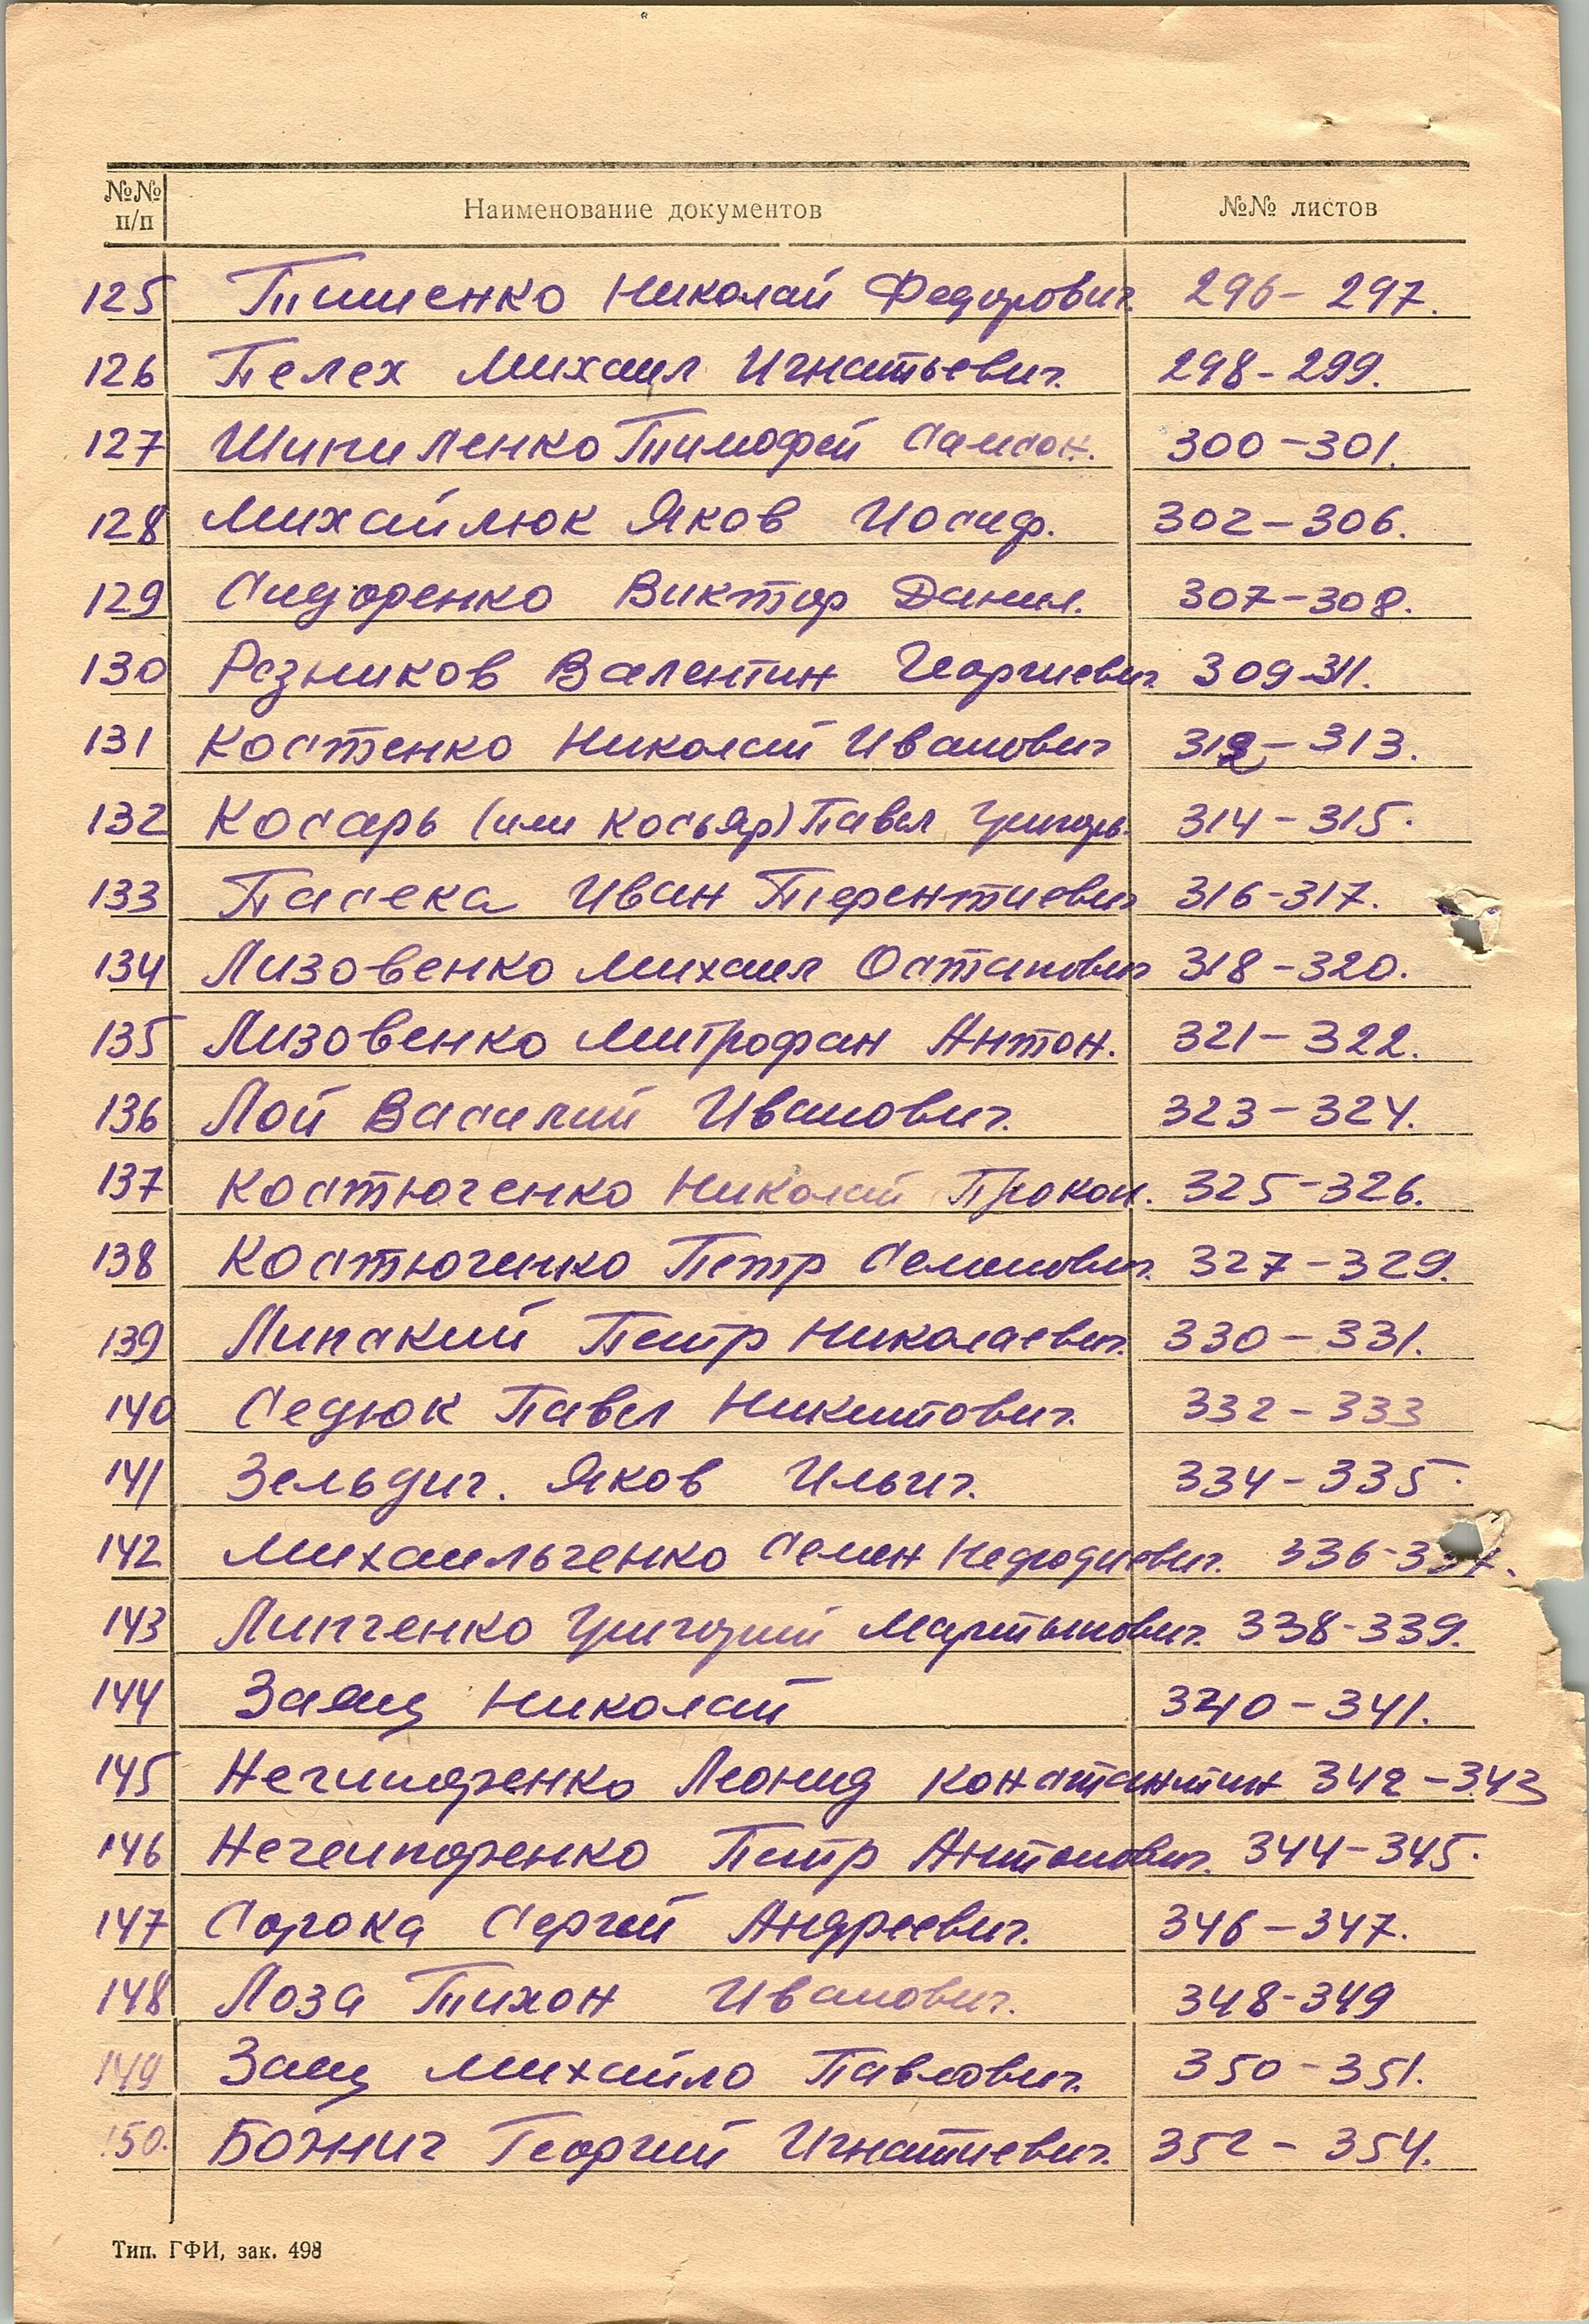 №№ п/п Наименование документов №№ листов
125 Тишенко Николай Федорович. 296-297.
126 Пелех Михаил Игнатьевич. 298-299.
127 Шипиленко Тимофей Самсон. 300-301.
128 Михайлюк Яков Иосиф. 302-306.
129 Сидоренко Виктор Данил. 307-308.
130 Резников Валентин Георгиевич. 309-311.
131 Костенко Николай Иванович 312-313.
132 Косарь (или Косьяр) Павел Григорь. 314-315.
133 Пасека Иван Терентиевич 316-317.
134 Лизовенко Михаил Остапович 318-320.
135 Лизовенко Митрофан Антон. 321-322.
136 Лой Василий Иванович. 323-324.
137 Костюченко Николай Прокоп. 325-326.
138 Костюченко Петр Семенович. 327-329.
139 Липский Петр Николаевич. 330-331.
140 Седюк Павел Никитович. 332-333
141 Зельдич. Яков Ильич. 334-335.
142 Михаильченко Семен 336-337.
143 Липченко Григорий Мартынович. 338-339.
144 Заяц Николай 340-341.
145 Нечипоренко Леонид Константин 342-343
146 Нечеипоренко Петр Антонович. 344-345.
147 Сорока Сергей Андреевич. 346-347.
148 Лоза Тихон Иванович. 348-349
149 Заец Михайло Павлович. 350-351.
150. Божич Георгий Игнатиевич. 352-354.
Тип. ГФИ, зак. 498